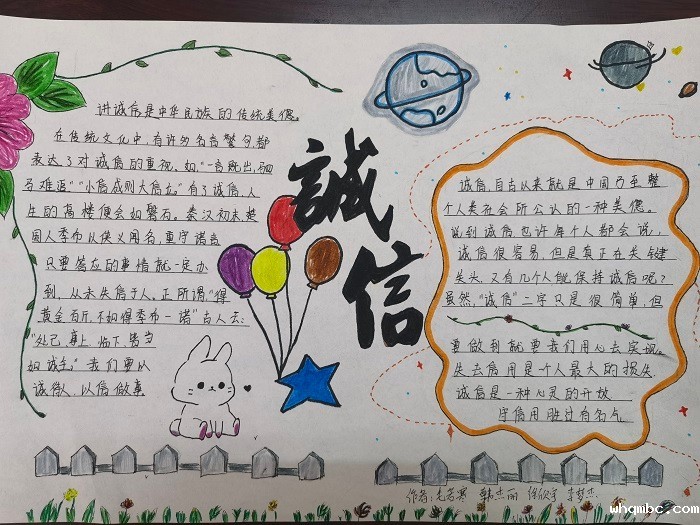 讲诚信是中华民族的传统美德。
在传统文化中,有许多名言警句,都
表达了对诚信的重视。如,"一言既出,驷
马难追""小信成则大信立"有了诚信,人
生的高楼便会如磐石。秦汉初末楚
国人季布以侠义闻名,重守诺言
只要答应的事情就一定办
到,从未失信于人。正所谓"得
黄金百斤,不如得季布一诺"古人云:
"处己、事上、临下,皆当
如诚至。"我们要以
诚待人,以信做事
誠
信
诚信,自古以来就是中国乃至整
个人类社会所公认的一种美德。
说到诚信也许每个人都会说,
诚信很容易,但是真正在关键
关头,又有几个人能保持诚信呢?
虽然,"诚信"二字只是很简单,但
要做到就要我们用心去实现。
失去信用是个人最大的损失
诚信是一种心灵的开放
守信用胜过有名气
作者:
whqmbc.com